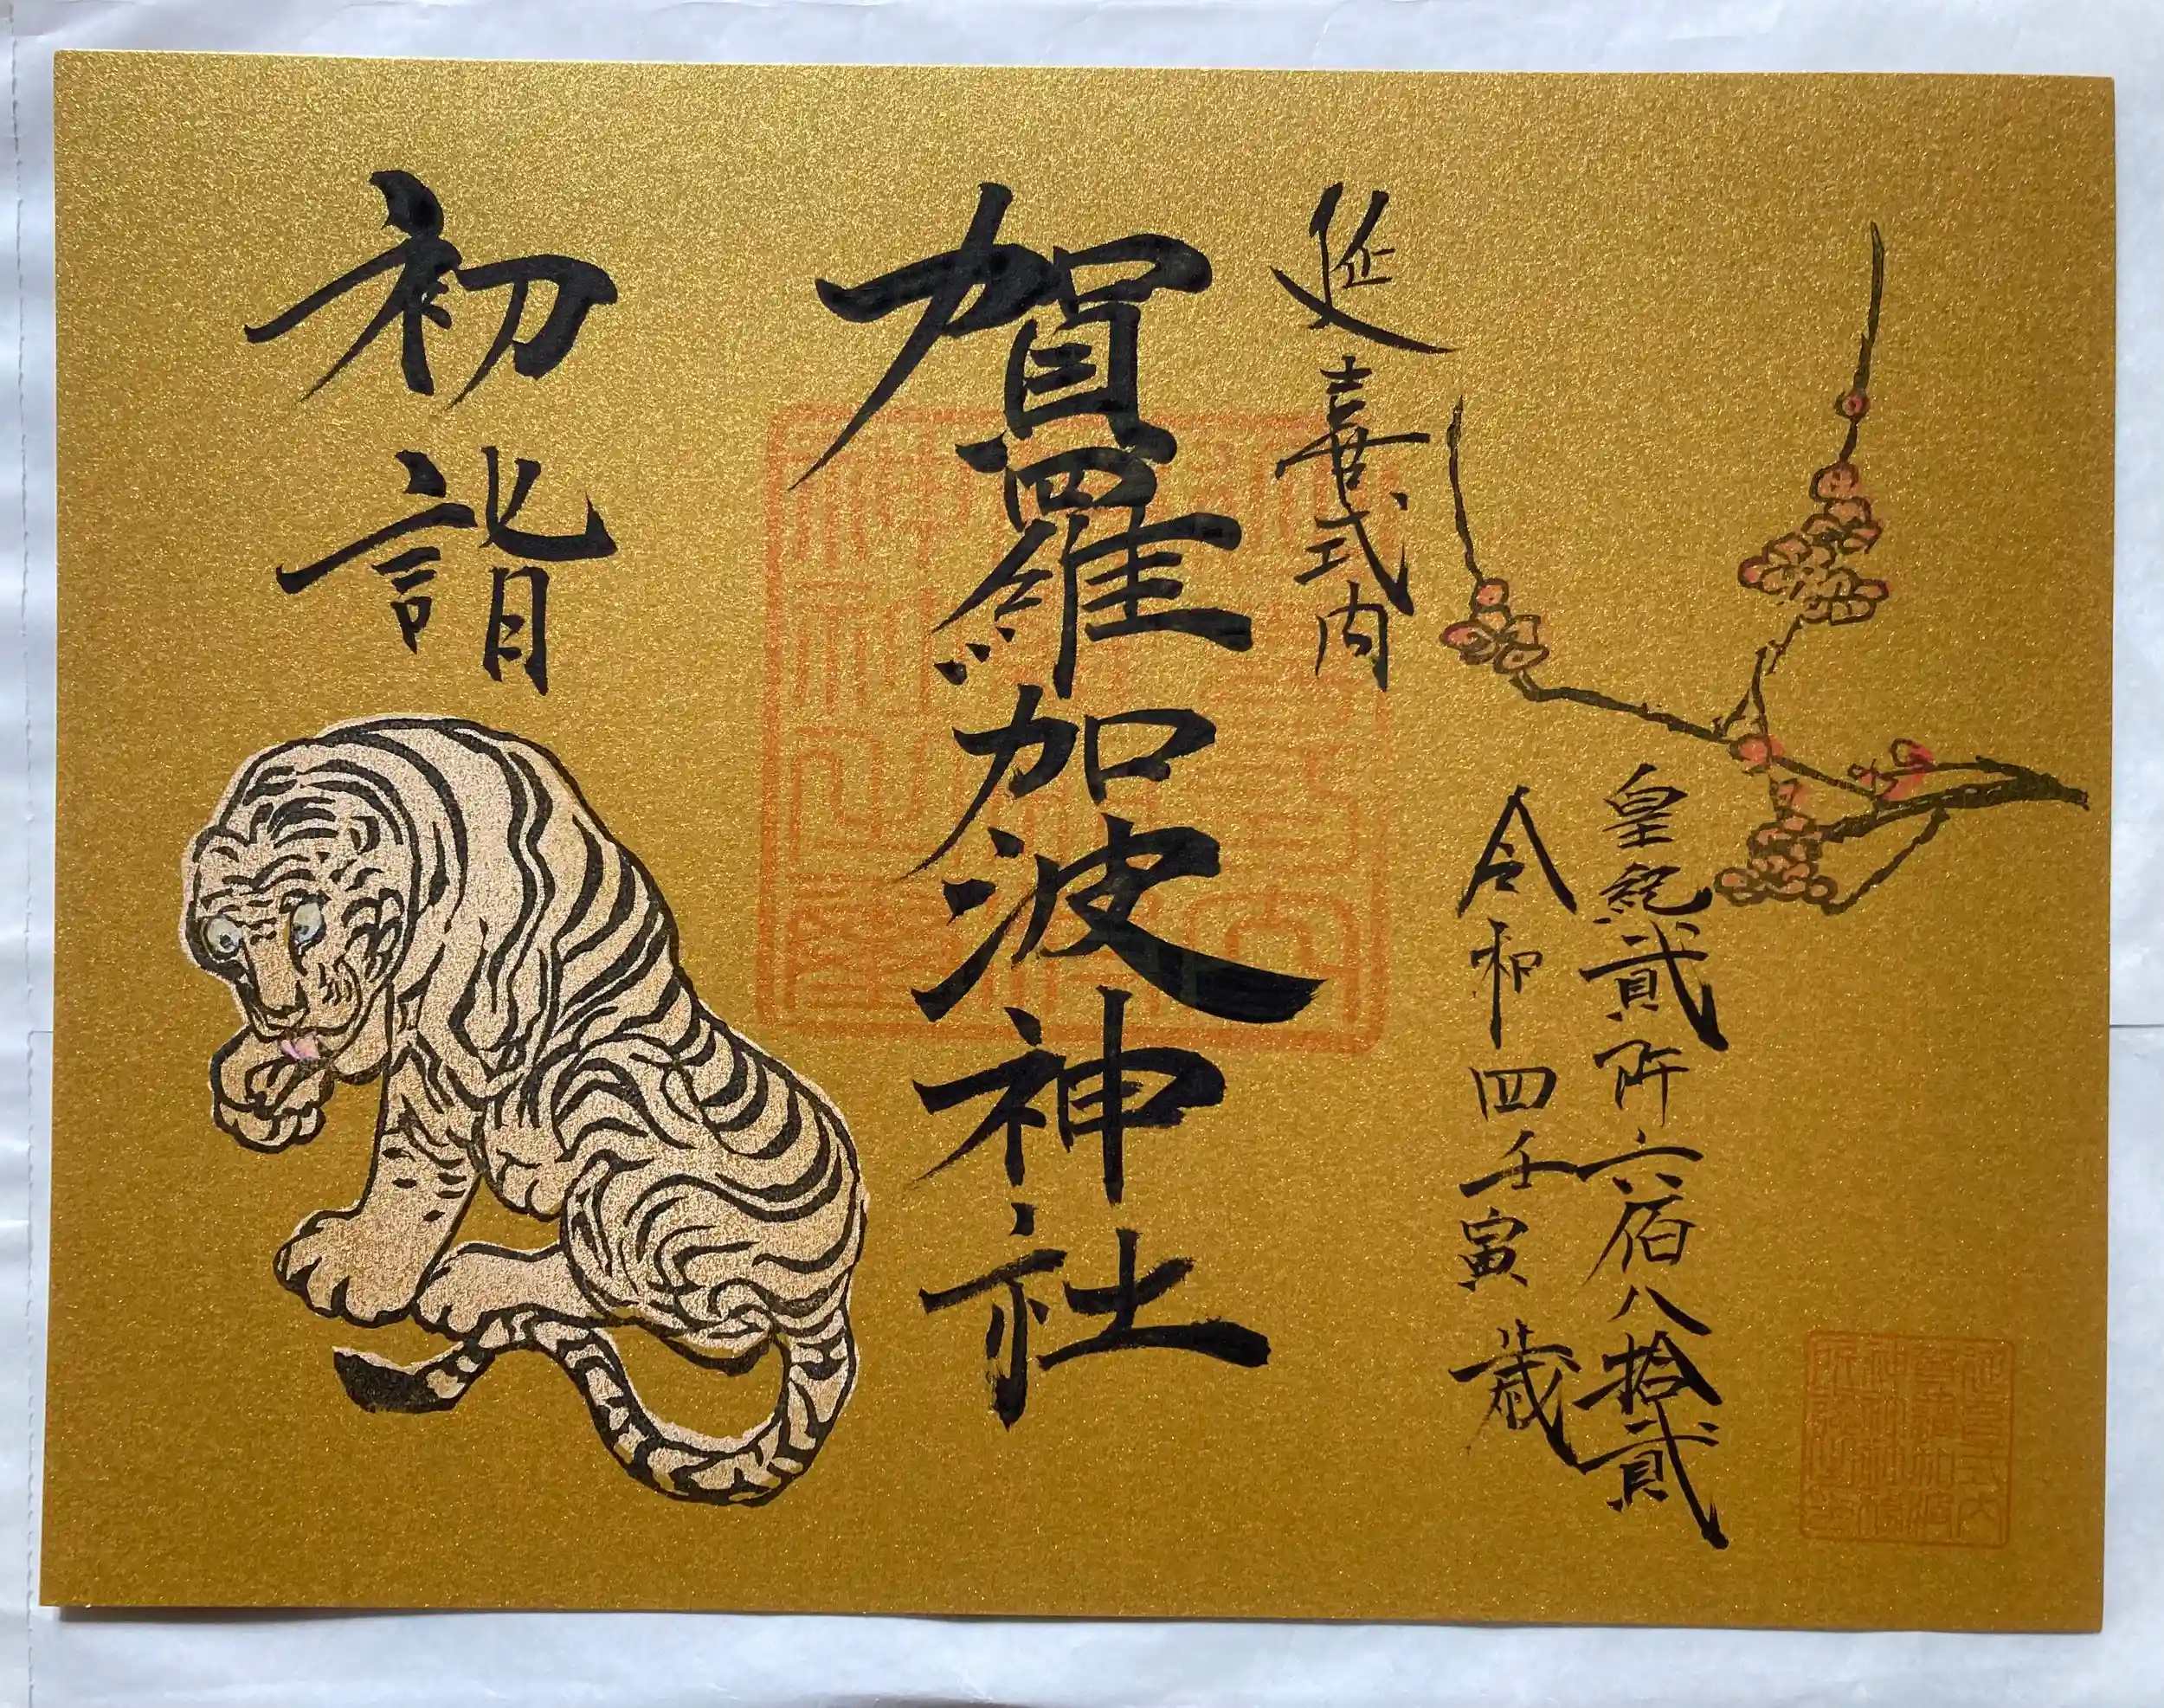 皇紀貳阡六佰八拾貳
令和四壬寅歳
延喜式内
賀羅加波神社
初詣